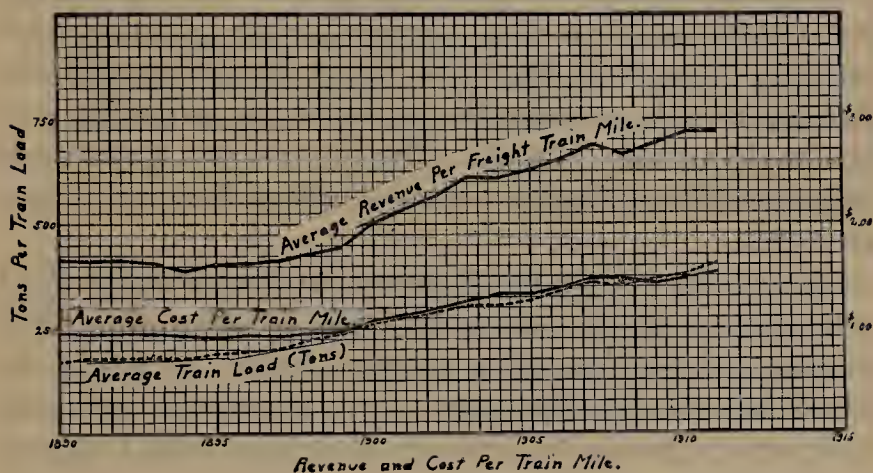 Tons Per Train Load
750
500
25
$3.00
$2.00
$1.00
Average Revenue Per Freight Train Mile.
Average Cost Per Train Mile
Average Train Load (Tons)
1890
1895
1900
1905
1910
1915
Revenue and Cost Per Train Mile.